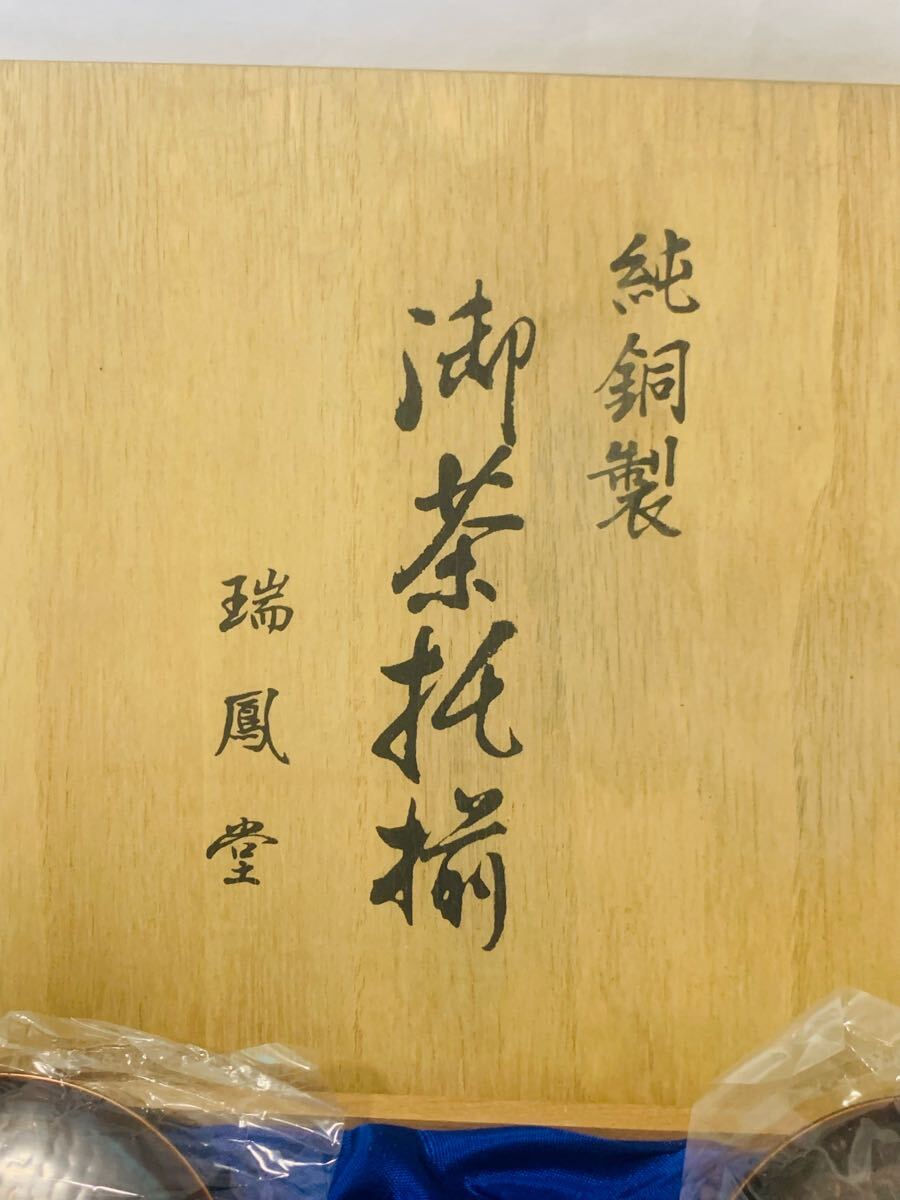 純銅製
御茶托揃
瑞鳳堂